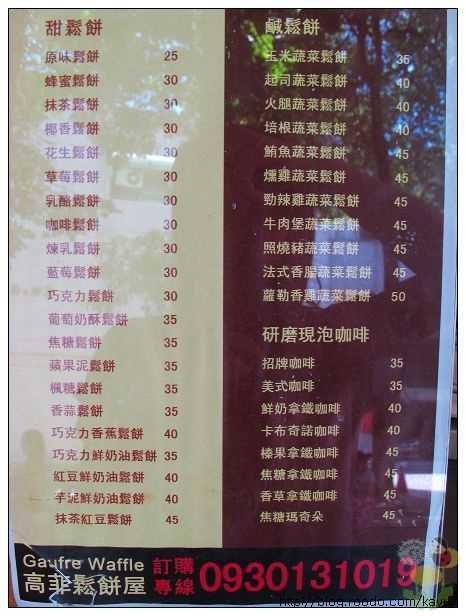 甜鬆餅
原味鬆餅 25
蜂蜜鬆餅 30
抹茶鬆餅 30
椰香鬆餅 30
花生鬆餅 30
草莓鬆餅 30
乳酪鬆餅 30
咖啡鬆餅 30
煉乳鬆餅 30
藍莓鬆餅 30
巧克力鬆餅 30
葡萄奶酥鬆餅 35
焦糖鬆餅 35
蘋果泥鬆餅 35
楓糖鬆餅 35
香蒜鬆餅 35
巧克力香蕉鬆餅 40
巧克力鮮奶油鬆餅 35
紅豆鮮奶油鬆餅 40
芋泥鮮奶油鬆餅 40
抹茶紅豆鬆餅 45
鹹鬆餅
玉米蔬菜鬆餅 35
起司蔬菜鬆餅 40
火腿蔬菜鬆餅 40
培根蔬菜鬆餅 40
鮪魚蔬菜鬆餅 45
燻雞蔬菜鬆餅 45
勁辣雞蔬菜鬆餅 45
牛肉堡蔬菜鬆餅 45
照燒豬蔬菜鬆餅 45
法式香腸蔬菜鬆餅 45
蘿勒香雞蔬菜鬆餅 50
研磨現泡咖啡
招牌咖啡 35
美式咖啡 35
鮮奶拿鐵咖啡 40
卡布奇諾咖啡 40
榛果拿鐵咖啡 45
焦糖拿鐵咖啡 45
香草拿鐵咖啡 45
焦糖瑪奇朵 45
Gaufre Waffle
高菲鬆餅屋
訂購
專線
0930131019